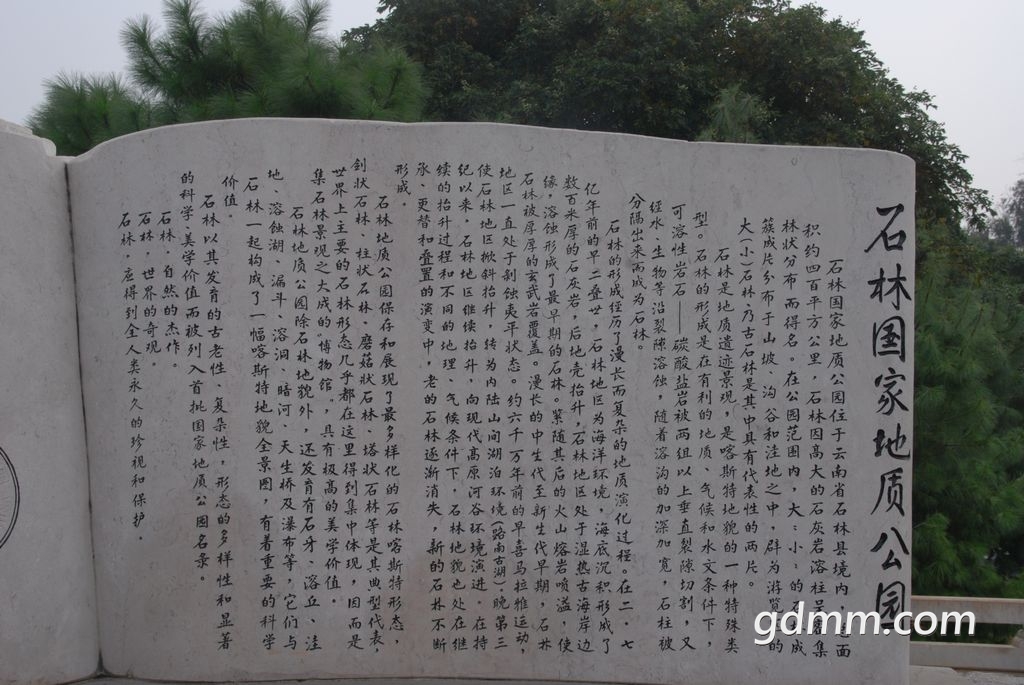 石林国家地质公园
石林国家地质公园位于云南省石林县境内，面
积约四百平方公里，石林因高大的石灰岩溶柱集
林状分布而得名。在公园范围内，大、小、的石成
簇成片分布于山坡、沟谷和洼地之中，群为游的
大(小)石林乃古石林是其中具有代表性的两片。
石林是地质遗迹景观，是喀斯特地貌的一种特殊类
型。石林的形成是在有利的地质、气候和水文条件下，
可溶性岩石——碳酸盐岩被两组以上垂直裂隙切割，又
经水、生物等沿裂隙溶蚀，随着溶沟的加深加宽，石柱被
分隔出来而成为石林。
石林的形成经历了漫长而复杂的地质演化过程。在二．七
亿年前的早二叠世，石林地区为海洋环境，海底沉积形成了
数百米厚的石灰岩，后地壳抬升，石林地区处于湿热古海岸边
缘，溶蚀形成了最早期的石林。紧随其后的火山熔岩喷溢，使
石林被厚厚的玄武岩覆盖。漫长的中生代至新生代早期，石林
地区一直处于剥蚀夷平状态。约六千万年前的早喜马拉雅运动，
使石林地区掀斜抬升，转为内陆山间湖泊环境(路南古湖)。晚第三
纪以来，石林地区继续抬升，向现代高原河谷环境演进。在持
续的抬升过程和不同的地理、气候条件下，石林地貌也处在继
承、更替和叠置的演变中，老的石林逐渐消失，新的石林不断
形成。
石林地质公园保存和展现了最多样化的石林喀斯特形态，
剑状石林、柱状石林、蘑菇状石林、塔状石林等是其典型代表，
世界上主要的石林形态几乎都在这里得到集中体现，因而是
集石林景观之大成的“博物馆”，具有极高的美学价值。
石林地质公园除石林地貌外，还发育有石牙、溶丘、洼
地、溶蚀湖、漏斗、溶洞、暗河、天生桥及瀑布等，它们与
石林一起构成了一幅喀斯特地貌全景图，有着重要的科学
价值。
石林以其发育的古老性、复杂性，形态的多样性和显著
的科学、美学价值而被列入首批国家地质公园名录。
石林，自然的杰作。
石林，世界的奇观。
石林，应得到全人类永久的珍视和保护。
gdmm.com